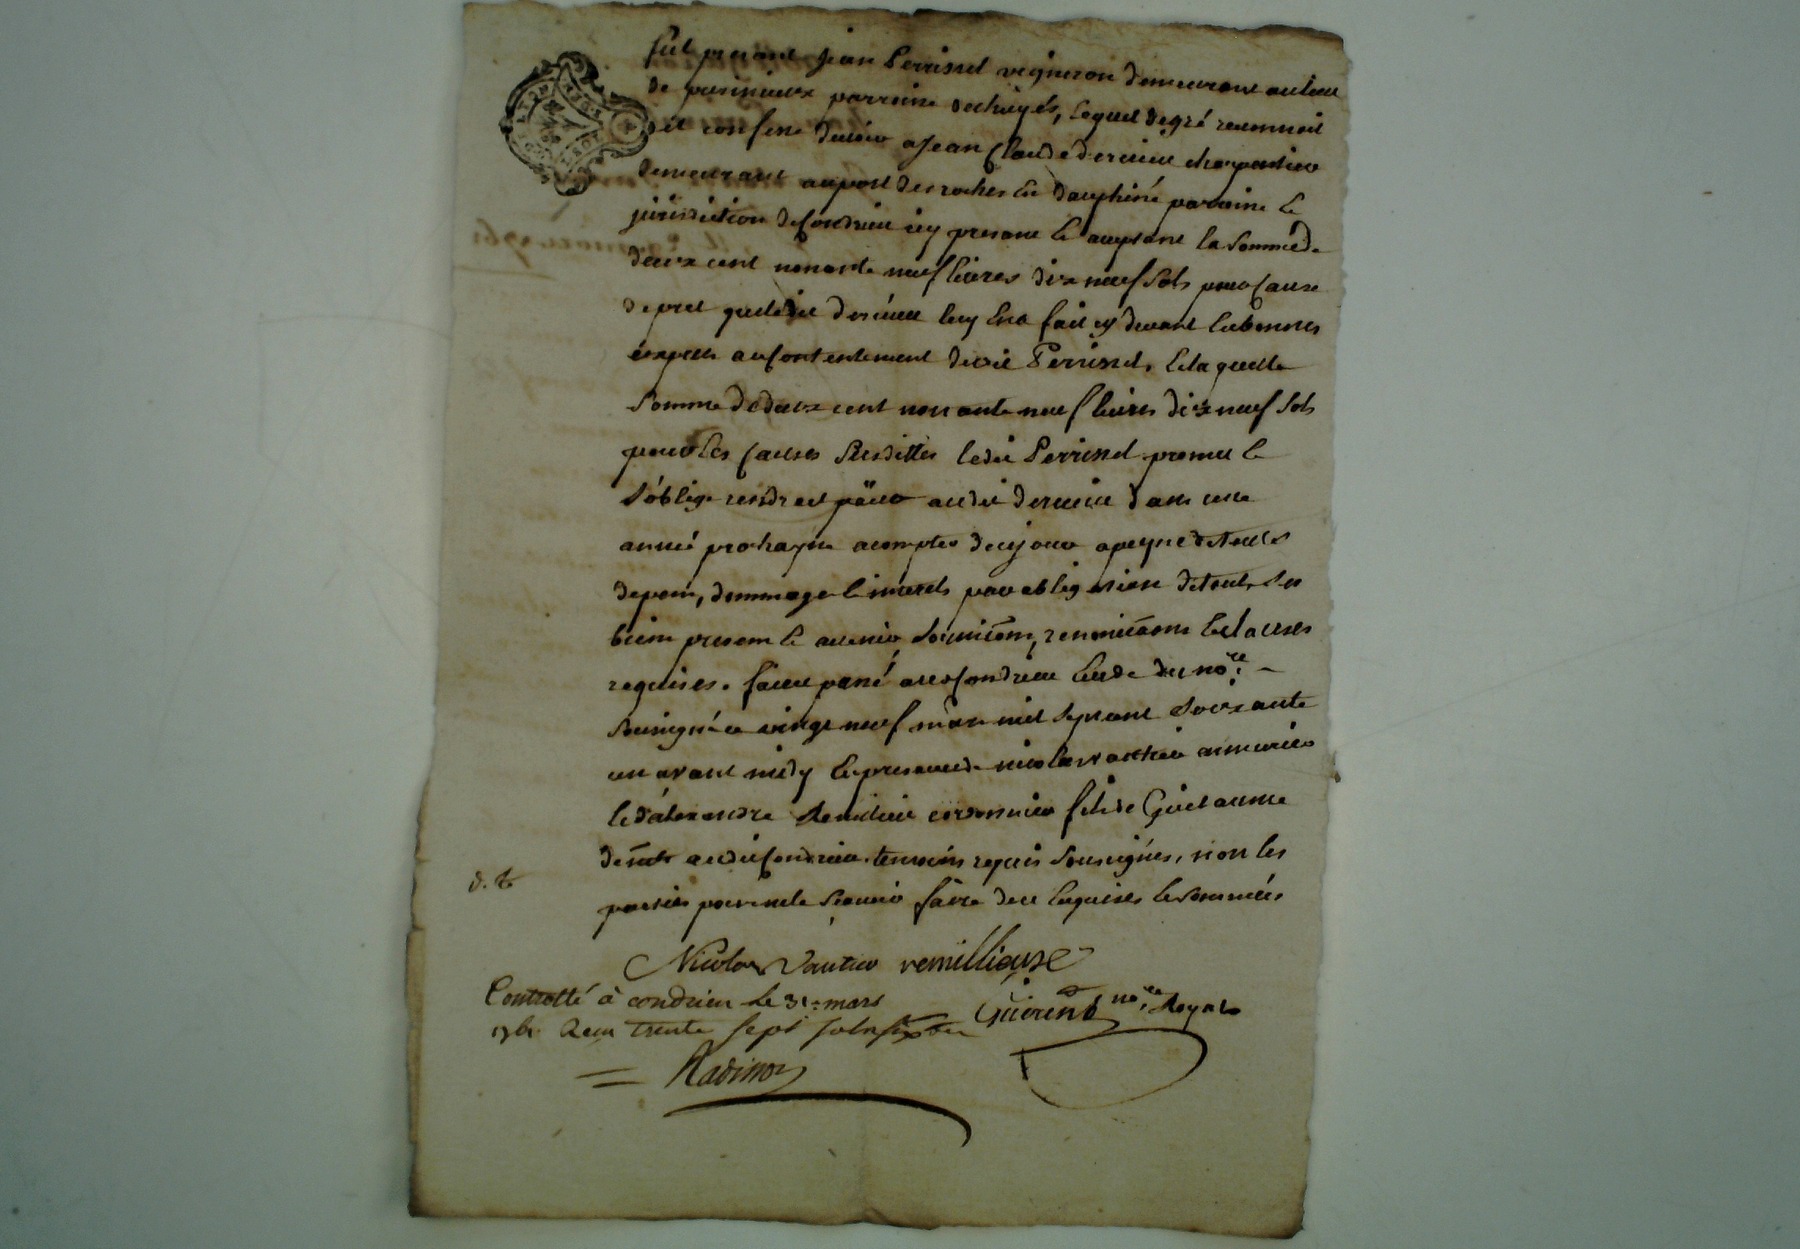 fut present jean Perrissel vigneron demeurant au lieu
de parroisse de chuyés, lequel de gré reconnoit
et confesse devoir a Jean Claude dervieu charpentier
demeurant au port des roches en dauphiné parroisse et
jurisdiction de Condrieu icy present et acceptant la somme de
deux cent nonante neuf livres dix neuf sols pour cause
de pret que ledit dervieu luy en a fait cy devant en bonnes
éspeces au contentement dudit Perrissel, et laquelle
somme de deux cent nonante neuf livres dix neuf sols
pour les causes susdittes ledit Perrissel promet et
s'oblige rendre et päier audit dervieu dans une
année prochayne a compter de ce jour a peyne de touts
depens, dommages et interets par obligation de touts ses
biens presents et avenir, soumissions, renonciations et clauses
requises. fait et passé audit Condrieu etude du no.re
soussigné ce vingt neuf mars mil sept cent soixante
un avant midy en presence de nicolas vautier armurier
et d'alexandre Remilieu cordonnier fils de Guillaume
dem.ts audit Condrieu temoins requis soussignés, non les
parties pour ne le sçavoir faire de ce enquises et sommées
d. t
Nicolas Vautier remillieux
Controllé à condrieu le 31 mars
1761. Recu trente sept sols six den
Guerin no.re Royal
Radisson